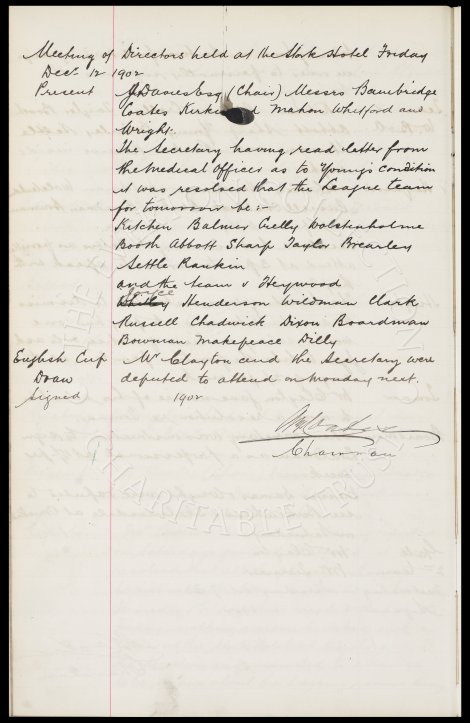 Meeting of Directors held at the Stork Hotel Friday
Decr 12 1902
Present J Davies Esq (Chair) Messrs Bainbridge
Coates Kirkwood Mahon Whitford and
Wright.
The Secretary having read letter from
the Medical Officer as to Young's condition
it was resolved that the League team
for tomorrow be :-
Kitchen Balmer Crelly Wolstenholme
Booth Abbott Sharp Taylor Brearley
Settle Rankin
and the team v Heywood
Henderson Wildman Clark
Russell Chadwick Dixon Boardman
Bowman Makepeace Dilly
English Cup Mr Clayton and the Secretary were
Draw deputed to attend on Monday next.
Signed 1902
Chairman
THE CHARITABLE TRUST